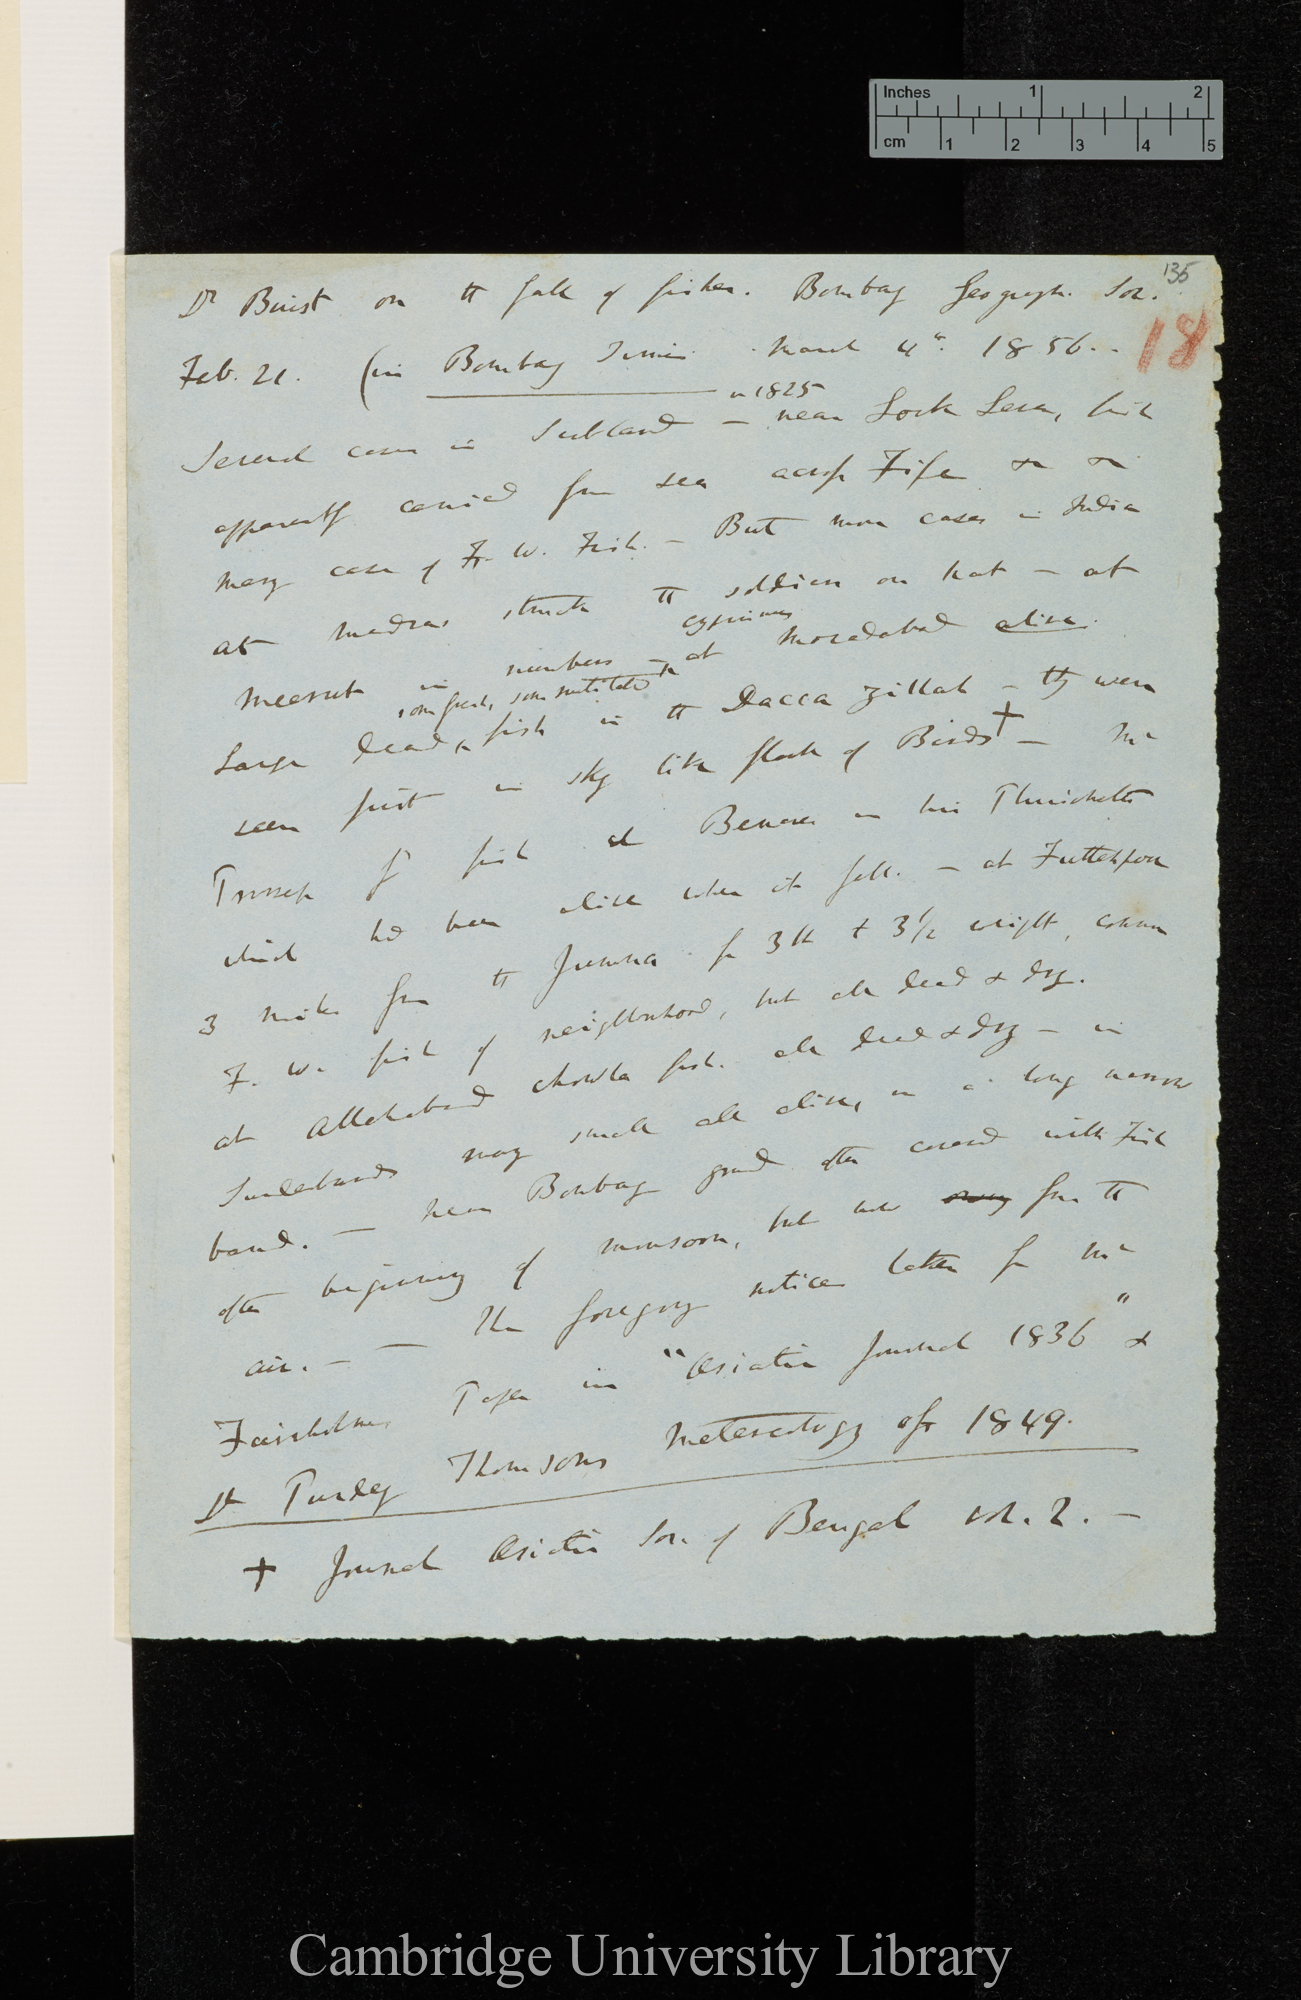 Inches 1 2
cm 1 2 3 4 5
135
18
Dr Buist on tt fall of fishes. Bombay Geograph. Soc.
Feb. 21. (in Bombay Times March 4th. 1856..
in 1825
Several cases in Scotland — near Loch Leven, fish
apparently carried from sea across Fife &c &c
many case of Fr. W. Fish. — But more cases in India
at Madras struck tt soldiers on hat — at
cyprinus
Meerut in numbers — at Moradabad alive.
some fresh, some mutilated &c
Large dead, fish in tt Dacca Zillah — they were
seen first in sky like flock of Birds † — Mr
Prinsep fd fish at Benares in his
which had been alive when it fell. — at Futtehpoor
3 miles from tt Jumna. fr 3 lb & 3 1/2 weight, common
F. W. fish of neighbourhood, but all dead & dry.
at Allahabad chowla fish. all dead & dry — in
Sunderbunds many small all alive, in a long narrow
band. — Near Bombay ground often covered with Fish
after beginning of monsoon, but not from tt
air. — — The foregoing notices taken fr Mr
Fairholme Paper in "Asiatic Journal 1836" &
Dr Purdey Thomsons Meteorology of 1849.
† Journal Asiatic Soc. of Bengal vol. 2. —
Cambridge University Library